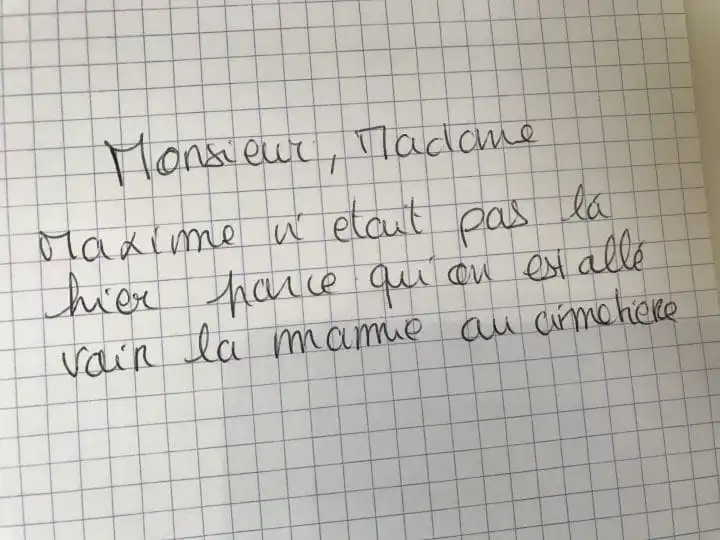 Monsieur, Madame
Maxime n'etait pas la
hier parce qu'on est allé
voir la mamie au cimchiere